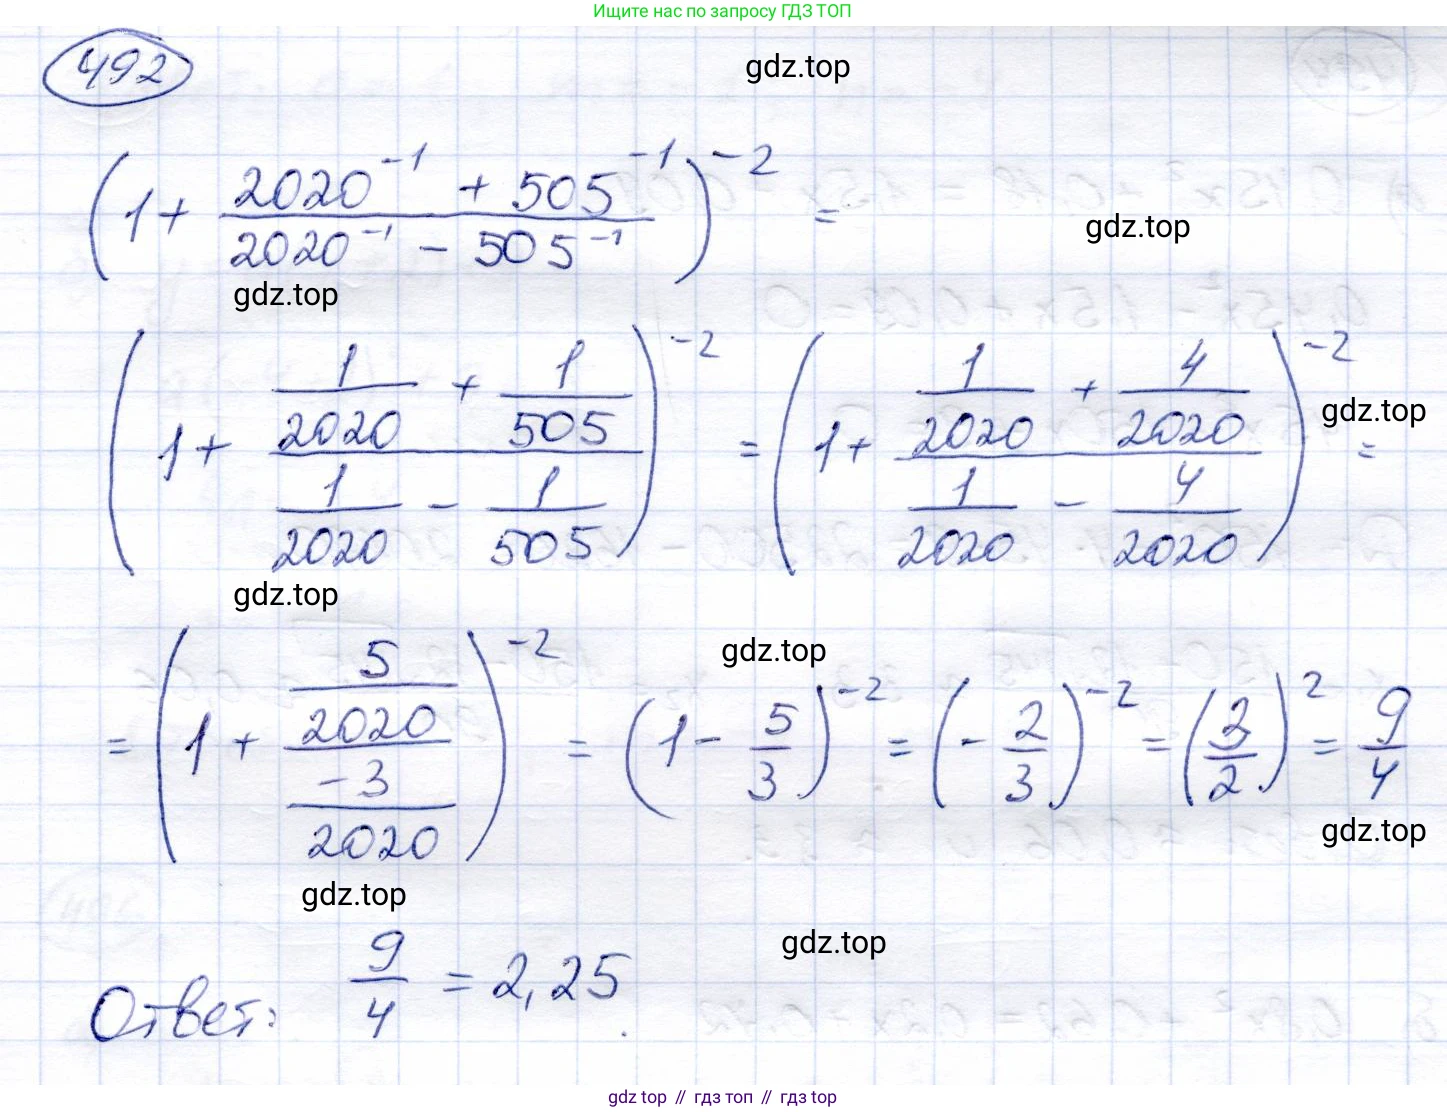 Ищите нас по запросу ГДЗ ТОП
492
gdz.top
(1 + (2020^-1 + 505^-1)/(2020^-1 - 505^-1))^-2 =
gdz.top
gdz.top
(1 + (1/2020 + 1/505)/(1/2020 - 1/505))^-2 = (1 + (1/2020 + 4/2020)/(1/2020 - 4/2020))^-2 =
gdz.top
gdz.top
= (1 + (5/2020)/(-3/2020))^-2 = (1 - 5/3)^-2 = (-2/3)^-2 = (3/2)^2 = 9/4
gdz.top
gdz.top
gdz.top
gdz.top
Ответ: 9/4 = 2,25.
gdz top // гдз топ // gdz top